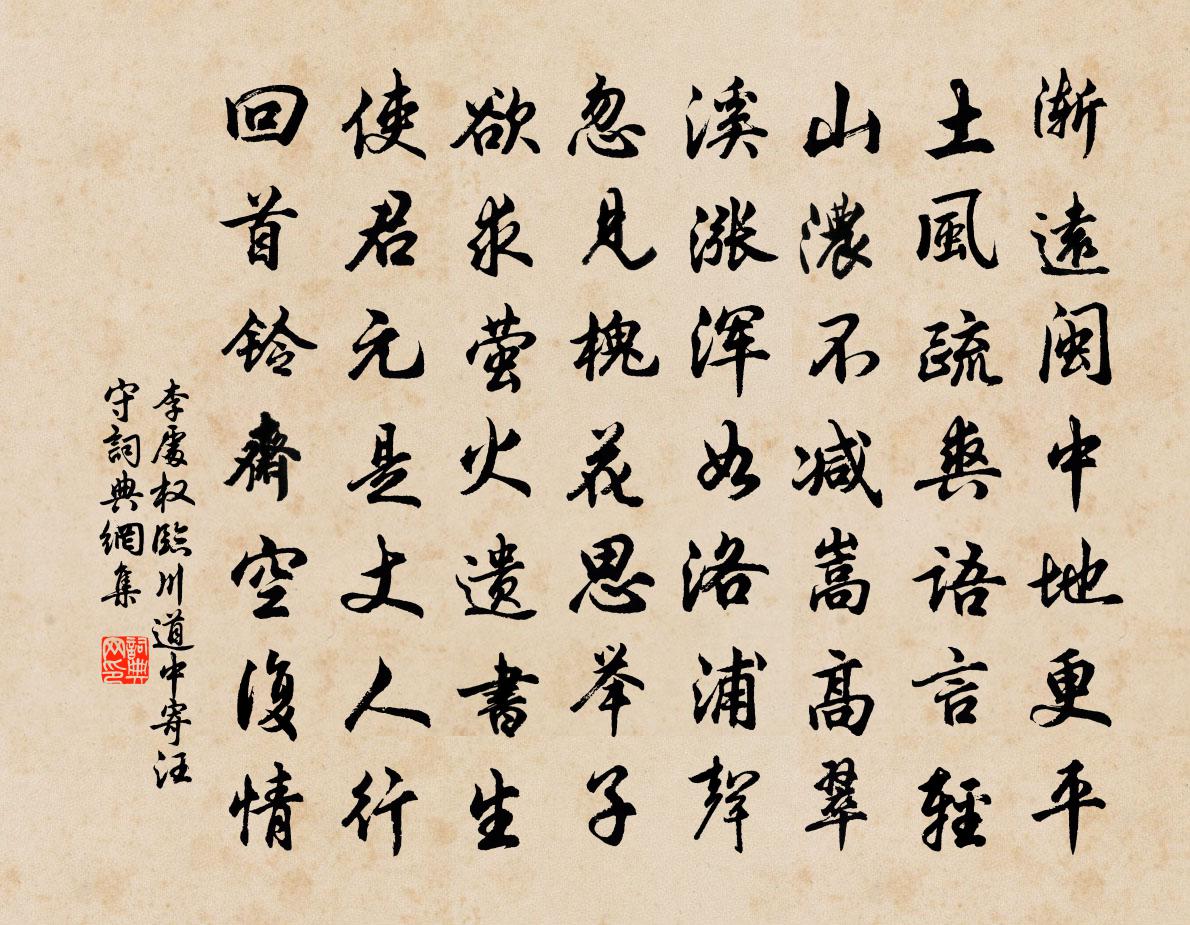 渐遠閩中地更平
土風疏爽語言輕
山濃不减嵩高翠
溪漲浑如洛浦聲
忽見槐花思举子
欲求萤火遗書生
使君元是丈人行
回首鈴齋空復情
李處权臨川道中寄汪
守詞典網集
詞典网印